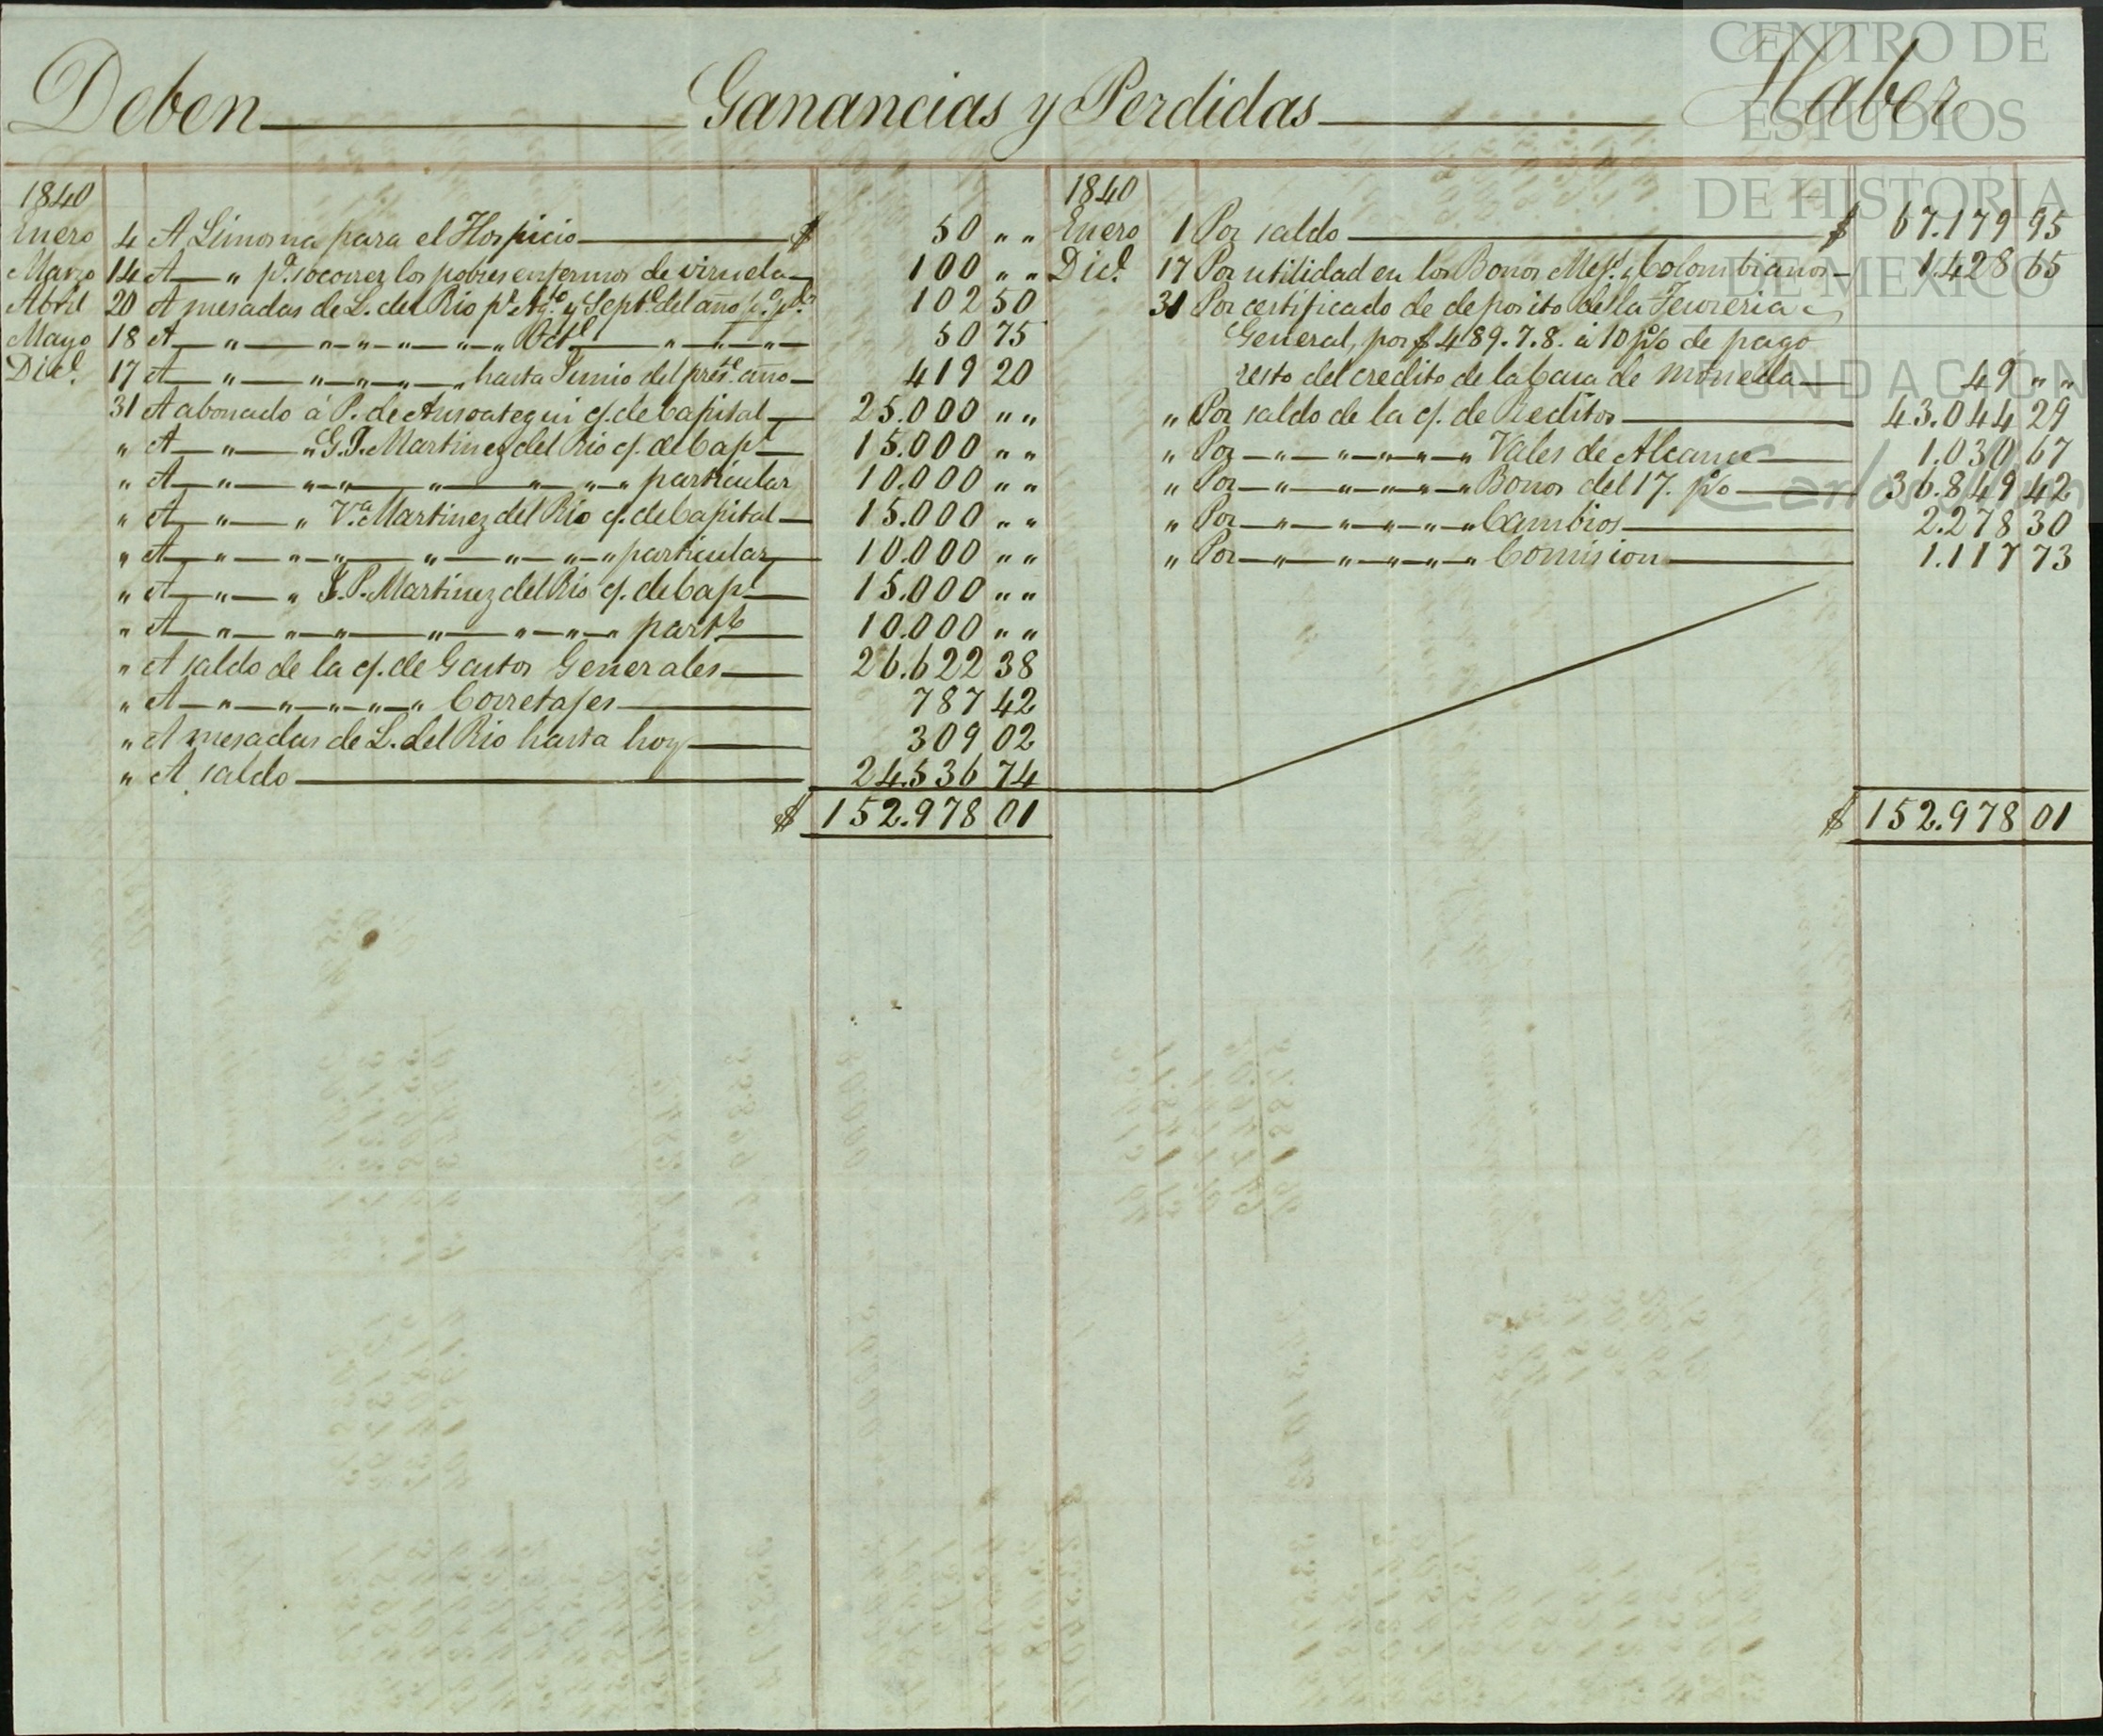 Deben Ganancias y Perdidas Haber
1840
Enero 4 A Limosna para el Hospicio $ 50 „ „
Marzo 14 A „ pa. socorrer los pobres enfermos de viruela 100 „ „
Abril 20 A mesadas de L. del Rio pr. Agto. y Septe. del año 102 50
Mayo 18 A „ „ „ „ „ „ Octe. „ „ „ 50 75
Dice. 17 A „ „ „ „ „ hasta Junio del preste. año 419 20
31 A abonado á P. de Ansoategui c/. de Capital 25.000 „ „
„ A „ „ G. J. Martinez del Rio c/. de Capl. 15.000 „ „
„ A „ „ „ „ „ „ „ particular 10.000 „ „
„ A „ „ Va. Martinez del Rio c/. de Capital 15.000 „ „
„ A „ „ „ „ „ „ „ particular 10.000 „ „
„ A „ „ J. P. Martinez del Rio c/. de Capl. 15.000 „ „
„ A „ „ „ „ „ „ „ partr. 10.000 „ „
„ A saldo de la c/. de Gastos Generales 26.622 38
„ A „ „ „ „ „ Corretajes 787 42
„ A mesadas de L. del Rio hasta hoy 309 02
„ A saldo 24.536 74
$ 152.978 01
1840
Enero 1 Por saldo $ 67.179 95
Dice. 17 Por utilidad en los Bonos Mejs. y Colombianos 1.428 65
31 Por certificado de deposito de la Tesoreria
General, por $ 489.7.8. á 10 p% de pago
resto del credito de la Casa de moneda 49 „ „
„ Por saldo de la c/. de Reditos 43.044 29
„ Por „ „ „ „ „ Vales de Alcance 1.030 67
„ Por „ „ „ „ „ Bonos del 17. p% 36.849 42
„ Por „ „ „ „ „ Cambios 2.278 30
„ Por „ „ „ „ „ Comision 1.117 73
$ 152.978 01
CENTRO DE
ESTUDIOS
DE HISTORIA
DE MEXICO
FUNDACIÓN
Carlos Slim